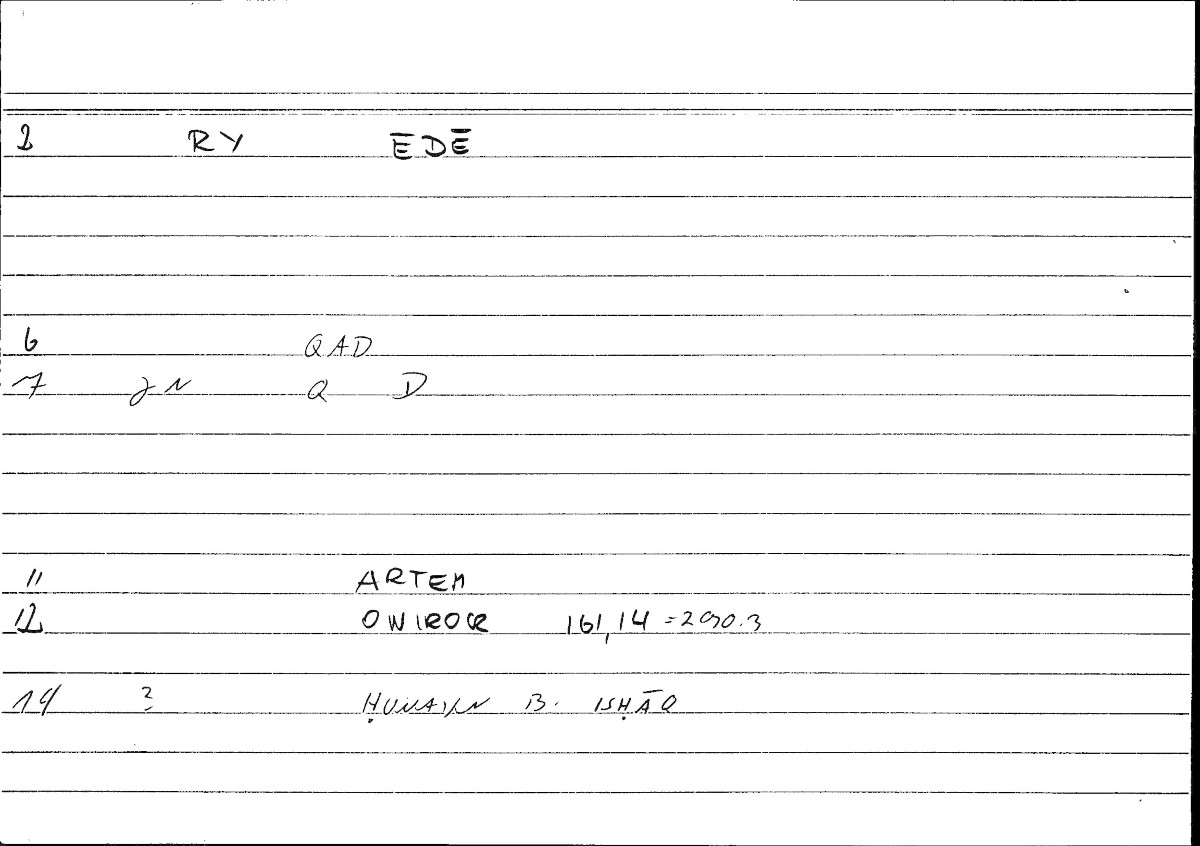 2 RY ĒDĒ
6 QAD
7 JN Q D
11 ARTEM
12 ONIROCR 161,14 =290.3
14 ? ḤUNAYN B. ISḤĀQ